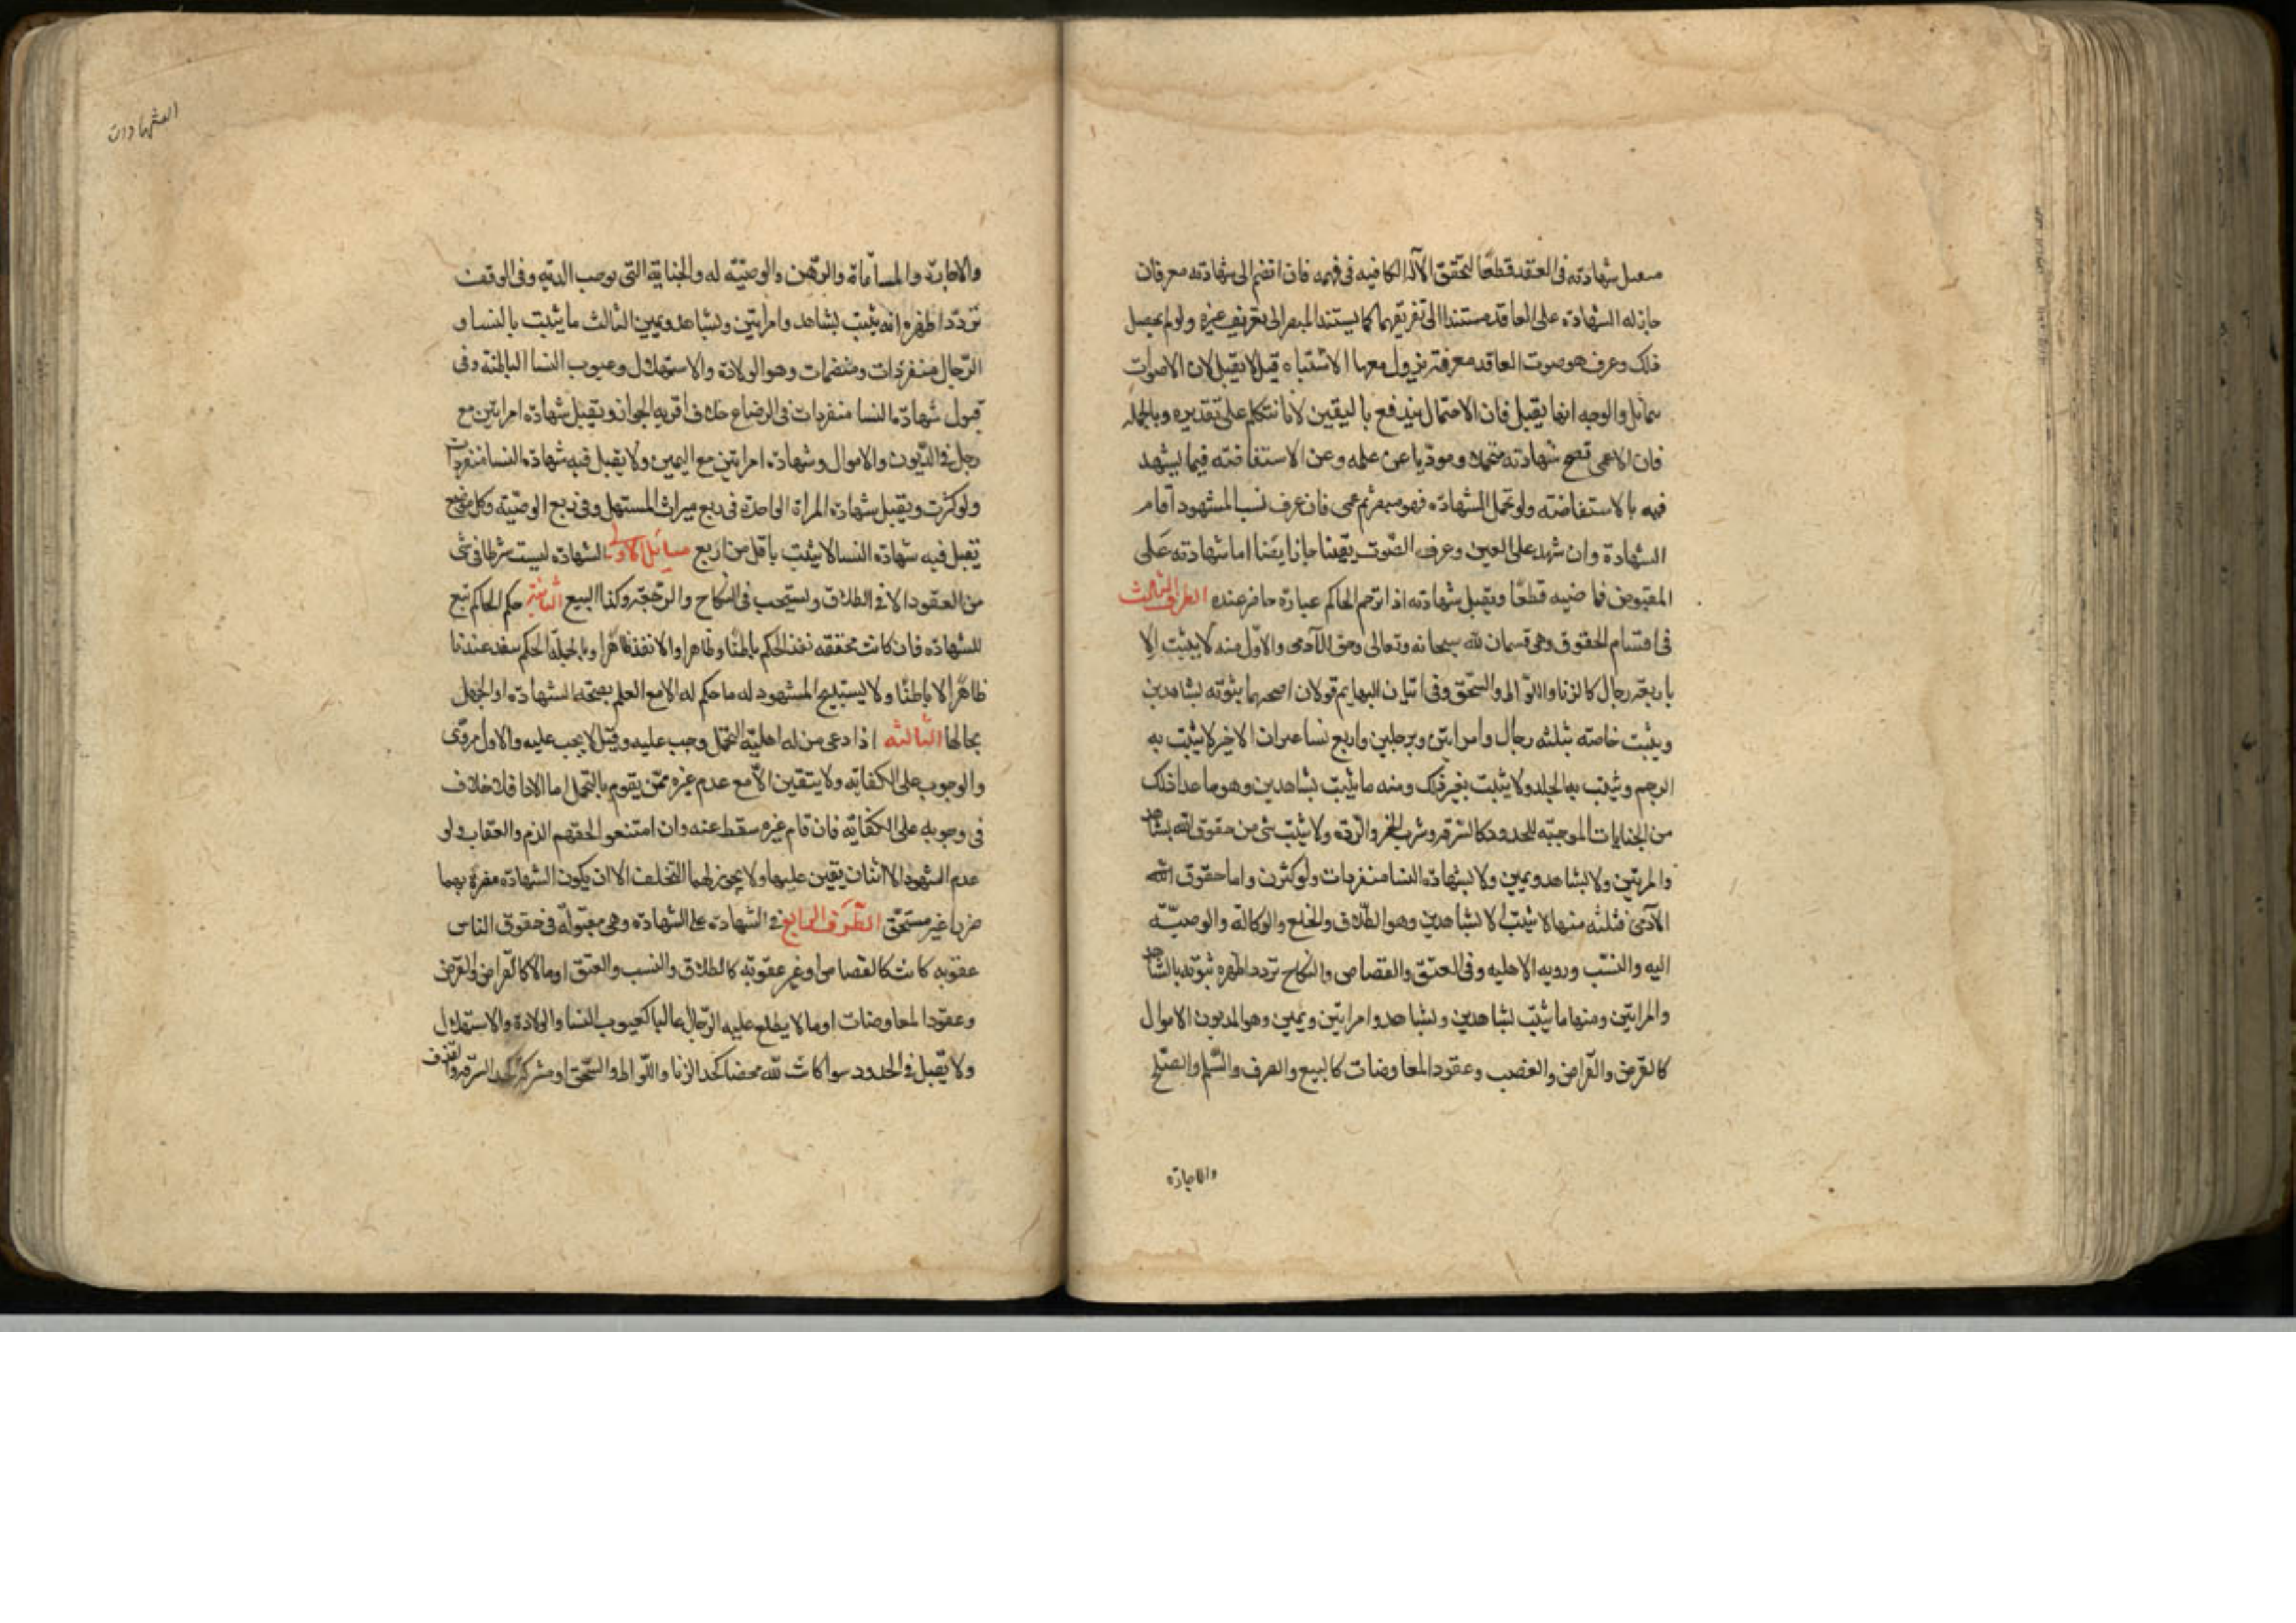 شهادته فى العقد قطعا لتحقق الآلة الكافيه فى فهمه فان انضم الى شهادته معرفان
جاز له الشهادة على العاقد مستندا الى تعريفهما كما يستند المبصر الى تعريف غيره ولو لم يحصل
ذلك وعرف هو صوت العاقد معرفة يزول معها الاشتباه قيل لا يقبل لان الاصوات
تماثل والوجه انها يقبل فان الاحتمال يندفع باليقين لانا نتكلم على تقديره وبالجمله
فان الاعمى تصح شهادته متحملا ومؤديا عن علمه وعن الاستفاضة فيما يشهد
فيه بالاستفاضه ولو تحمل الشهادة فهو مبصر ثم عمى فان عرف نسب المشهود اقام
الشهادة وان شهد على العين وعرف الصوت يقينا جاز ايضا اما شهادته على
المقبوض فماضيه قطعا ويقبل شهادته اذا ترجم للحاكم عبارة حاضر عنده الطرف الثالث
فى اقسام الحقوق وهى قسمان لله سبحانه وتعالى وحق للآدمى والاول منه لا يثبت الا
باربعة رجال كالزنا واللواط والسحق وفى اتيان البهايم قولان اصحهما ثبوته بشاهدين
ويثبت خاصة بثلثه رجال وامراتين وبرجلين واربع نسا غيران الاخير لا يثبت به
الرجم ويثبت به الجلد ولا يثبت بغير ذلك ومنه ما يثبت بشاهدين وهو ما عدا ذلك
من الجنايات الموجبه للحدود كالسرقه وشرب الخمر والردة ولا يثبت شى من حقوق الله بشاهد
والمراتين ولا بشاهد ويمين ولا بشهادة النسا منفردات ولو كثرن واما حقوق الله
الآدمى فثلثه منها لا يثبت الا بشاهدين وهو الطلاق والخلع والوكالة والوصية
اليه والنسب ورويه الاهليه وفى العتق والقصاص والنكاح تردد اظهره ثبوته بالشاهد
والمراتين ومنها ما يثبت بشاهدين وبشاهد وامراتين ويمين وهو الديون الاموال
كالقرض والقراض والغصب وعقود المعاوضات كالبيع والصرف والسلم والصلح
والاجارة
الشهادات
والاجارة والمساقاة والرهن والوصية له والجناية التى يوجب الديه وفى الوقف
تردد اظهره انه يثبت بشاهد وامراتين وبشاهد ويمين الثالث ما يثبت بالنسا و
الرجال منفردات ومنضمات وهو الولادة والاستهلال وعيوب النسا الباطنة وفى
قبول شهادة النسا منفردات فى الرضاع خلاف اقربه الجواز ويقبل شهادة امراتين مع
رجل فى الديون والاموال وشهادة امراتين مع اليمين ولا يقبل فيه شهادة النسا منفردات
ولو كثرت ويقبل شهادة المراة الواحدة فى ربع ميراث المستهل وفى ربع الوصية وكل موضع
تقبل فيه شهادة النسا لا يثبت باقل من اربع مسايل الاولى الشهادة ليست شرطا فى شى
من العقود الا فى الطلاق ويستحب فى النكاح والرجعة وكذا البيع الثانية حكم الحاكم تبع
للشهادة فان كانت محققه نفذ الحكم باطنا وظاهرا والا نفذ ظاهرا وبالجملة الحكم ينفذ عندنا
ظاهرا لا باطنا ولا يستبيح المشهود له ما حكم له الا مع العلم بصحة الشهادة او الجهل
بحالها الثالثه اذا دعى من له اهلية التحمل وجب عليه وقيل لا يجب عليه والاول مروى
والوجوب على الكفاية ولا يتعين الا مع عدم غيره ممن يقوم بالتحمل اما الادا فلا خلاف
فى وجوبه على الكفاية فان قام غيره سقط عنه وان امتنعوا لحقهم الذم والعقاب ولو
عدم الشهود الا اثنان يعين عليهما ولا يجوز لهما التخلف الا ان يكون الشهادة مضرة بهما
ضررا غير مستحق الطرف الرابع فى الشهادة على الشهادة وهى مقبولة فى حقوق الناس
عقوبه كانت كالقصاص او غير عقوبة كالطلاق والنسب والعتق او مالا كالقراض والقرض
وعقود المعاوضات او ما لا يطلع عليه الرجال غالبا كعيوب النسا والولادة والاستهلال
ولا يقبل فى الحدود سوا كانت لله محضا كحد الزنا واللواط والسحق او مشركة كحد السرقه والقذف